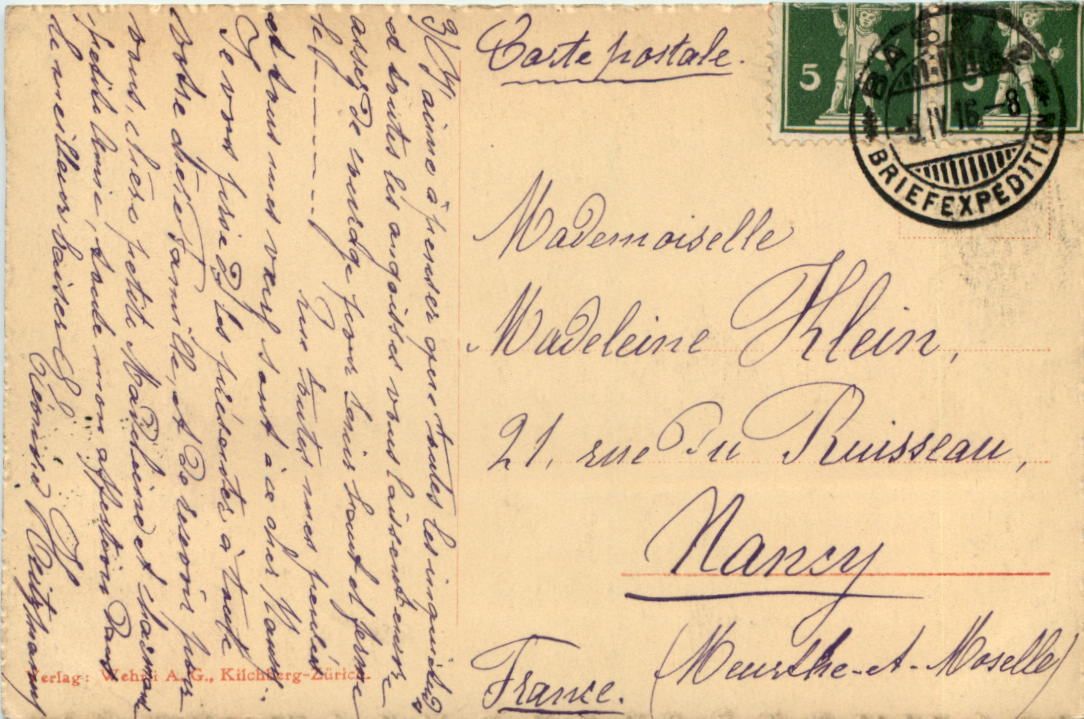 Carte postale.
5 5
BASEL 2
-5.IV.16.-8
BRIEFEXPEDITION
Mademoiselle
Madeleine Klein,
21, rue du Ruisseau,
Nancy
(Meurthe-et-Moselle)
France.
3/ J'aime à penser que toutes les inquiétudes
et toutes les angoisses vous laissent encore
assez de courage pour tenir haut et ferme
le f------f que toutes mes pensées
et tous mes vœux sont à ce cher Nancy.
Je vous puisse les présenter à toute
votre chère famille, et de revoir par
vous, chère petite Madeleine et charmante
petite amie, toute mon affection dans
le meilleur baiser
Léonie
Verlag: Wehrli A. G., Kilchberg-Zürich.